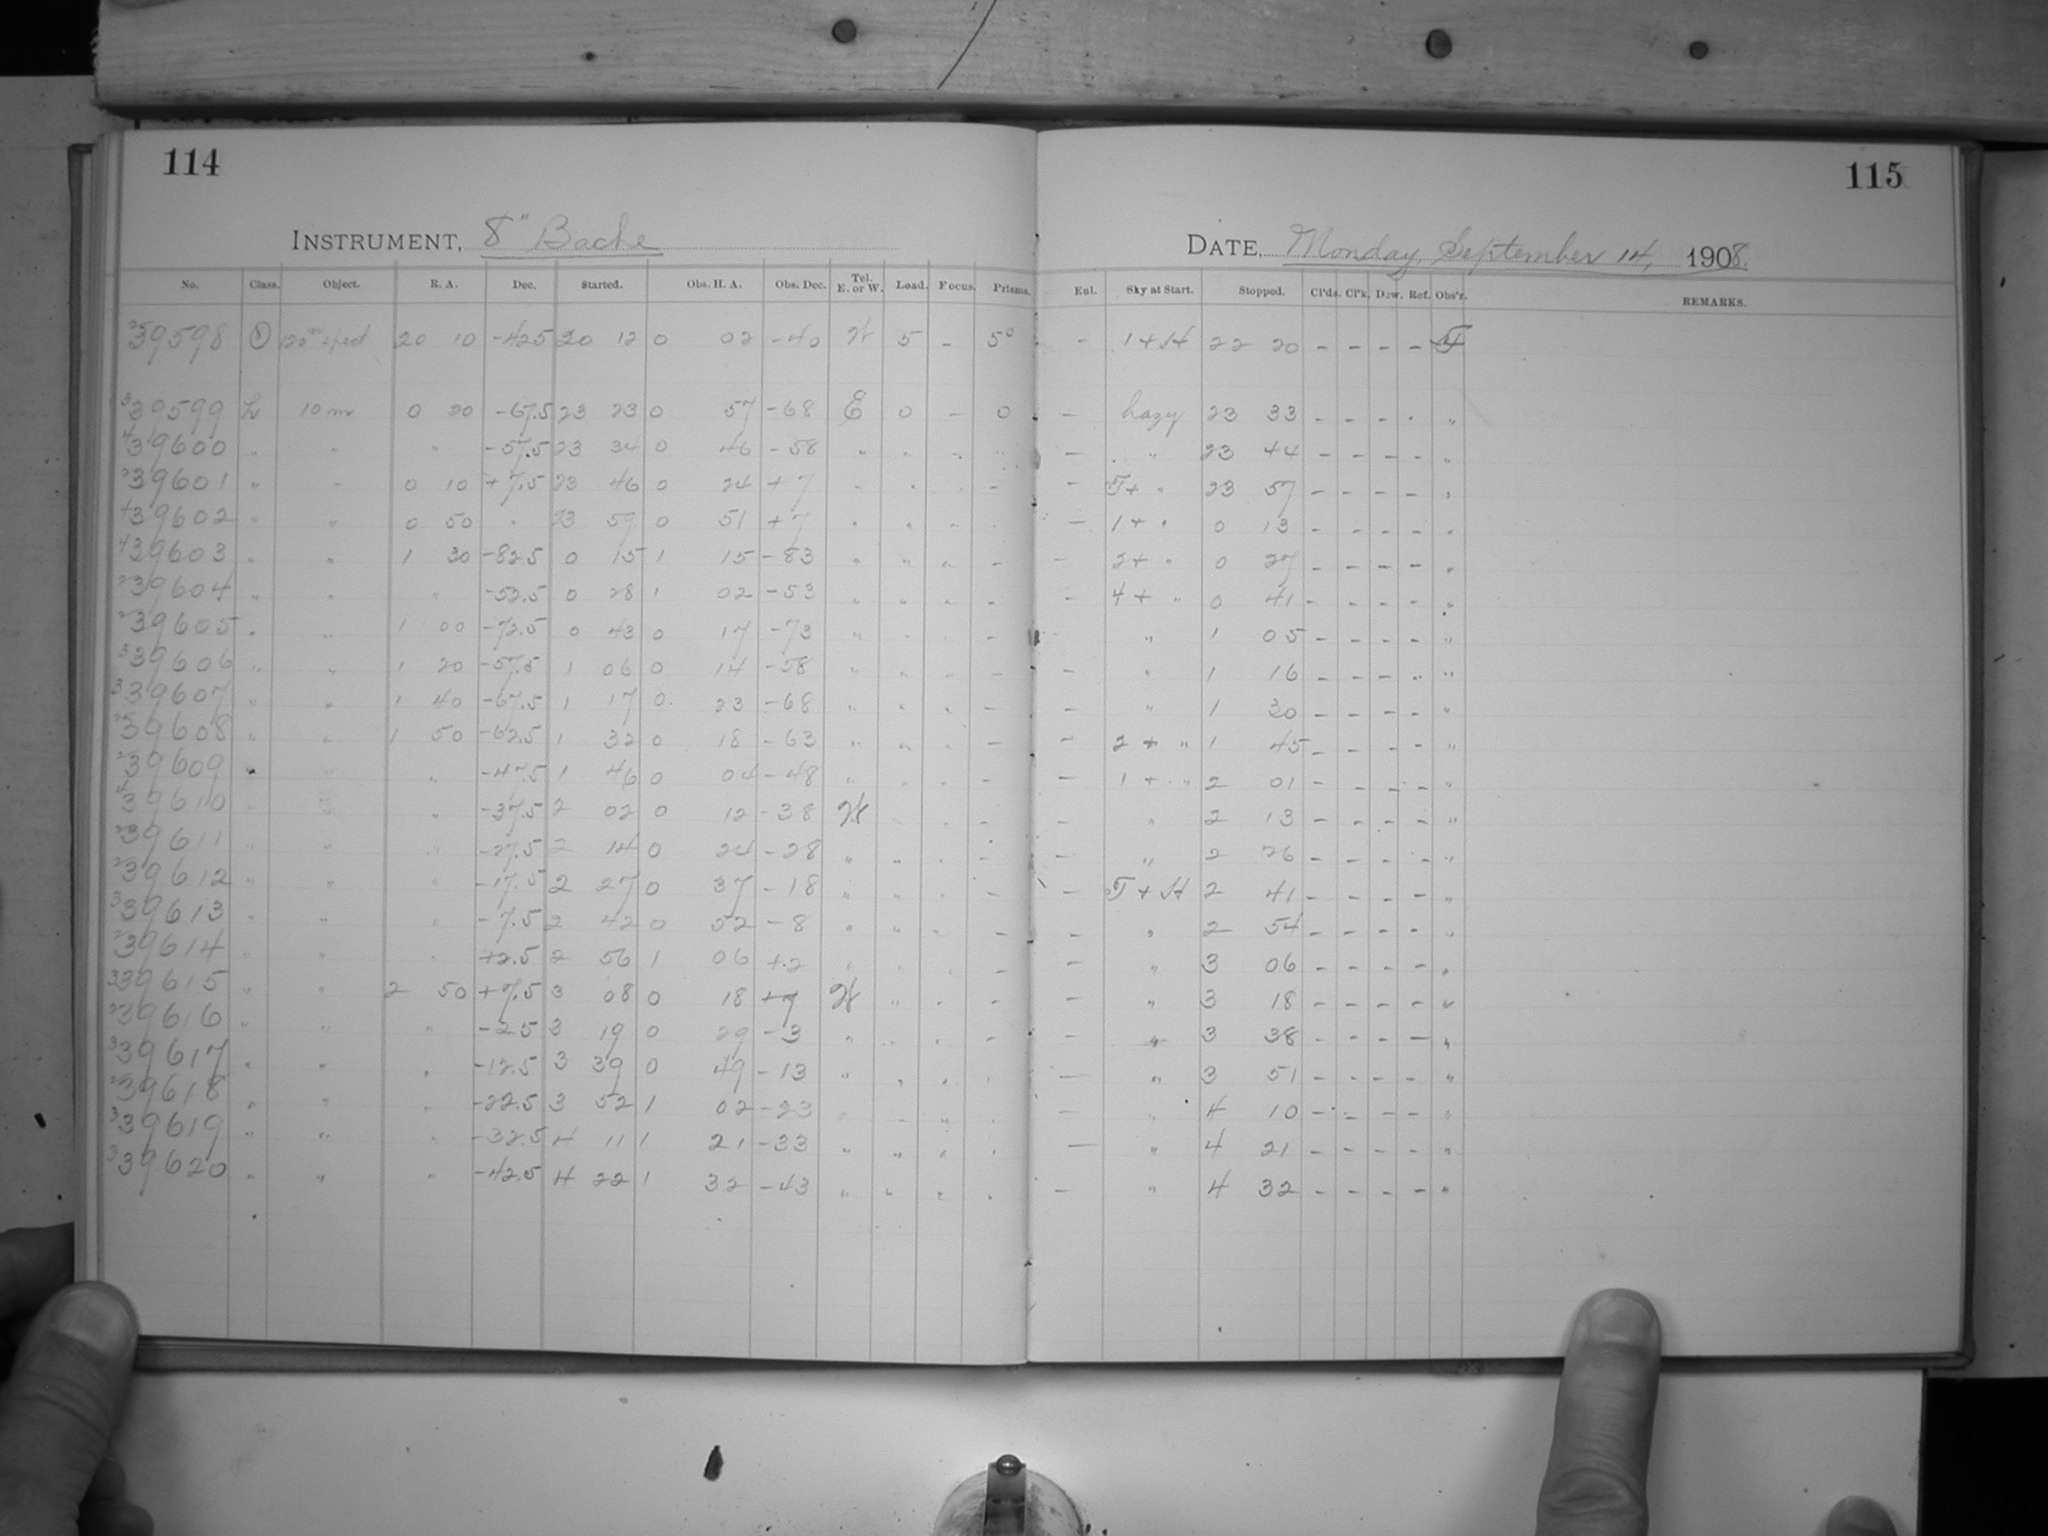 114
115
INSTRUMENT, 8" Bache
DATE, Monday, September 14, 1908.
No. Class. Object. R. A. Dec. Started. Obs. H. A. Obs. Dec. Tel. E. or W. Load. Focus. Prisms. Eul. Sky at Start. Stopped. Cl'ds. Cl'k. Dew. Ref. Obs'r. REMARKS.
39598 120m spect 20 10 -42.5 20 12 0 02 -40 W 5 - 5° - 1 + H 22 20 - - - -
39599 L 10 m 0 20 -67.5 23 23 0 57 -68 E 0 - 0 - hazy 23 33 - - - - "
39600 " " " -57.5 23 34 0 46 -58 " " " - " 23 44 - - - - "
39601 " " 0 10 +7.5 23 46 0 24 +7 " " " - - 5 + " 23 57 - - - - "
39602 " " 0 50 " 23 59 0 51 +7 " " " - - 1 + " 0 13 - - - - "
39603 " " 1 30 -82.5 0 15 1 15 -83 " " " - - 2 + " 0 27 - - - - "
39604 " " " -52.5 0 28 1 02 -53 " " " - - 4 + " 0 41 - - - - "
39605 " " 1 00 -72.5 0 43 0 17 -73 " " " - " 1 05 - - - - "
39606 " " 1 20 -57.5 1 06 0 14 -58 " " " - - " 1 16 - - - - "
39607 " " 1 40 -67.5 1 17 0 23 -68 " " " - - " 1 30 - - - - "
39608 " " 1 50 -62.5 1 32 0 18 -63 " " " - - 2 + " 1 45 - - - - "
39609 " " " -47.5 1 46 0 04 -48 " " " - - 1 + " 2 01 - - - - "
39610 " " " -37.5 2 02 0 12 -38 W " " - - " 2 13 - - - - "
39611 " " " -27.5 2 14 0 24 -28 " " " - - " 2 26 - - - - "
39612 " " " -17.5 2 27 0 37 -18 " " " - - 5 + H 2 41 - - - - "
39613 " " " -7.5 2 42 0 52 -8 " " " - - " 2 54 - - - - "
39614 " " " +2.5 2 56 1 06 +2 " " " - - " 3 06 - - - - "
39615 " " 2 50 +7.5 3 08 0 18 +7 W " " - - " 3 18 - - - - "
39616 " " " -2.5 3 19 0 29 -3 " " " - - " 3 38 - - - - "
39617 " " " -12.5 3 39 0 49 -13 " " " " - " 3 51 - - - - "
39618 " " " -22.5 3 52 1 02 -23 " " " " - " 4 10 - - - - "
39619 " " " -32.5 4 11 1 21 -33 " " " " - " 4 21 - - - - "
39620 " " " -42.5 4 22 1 32 -43 " " " " - " 4 32 - - - - "